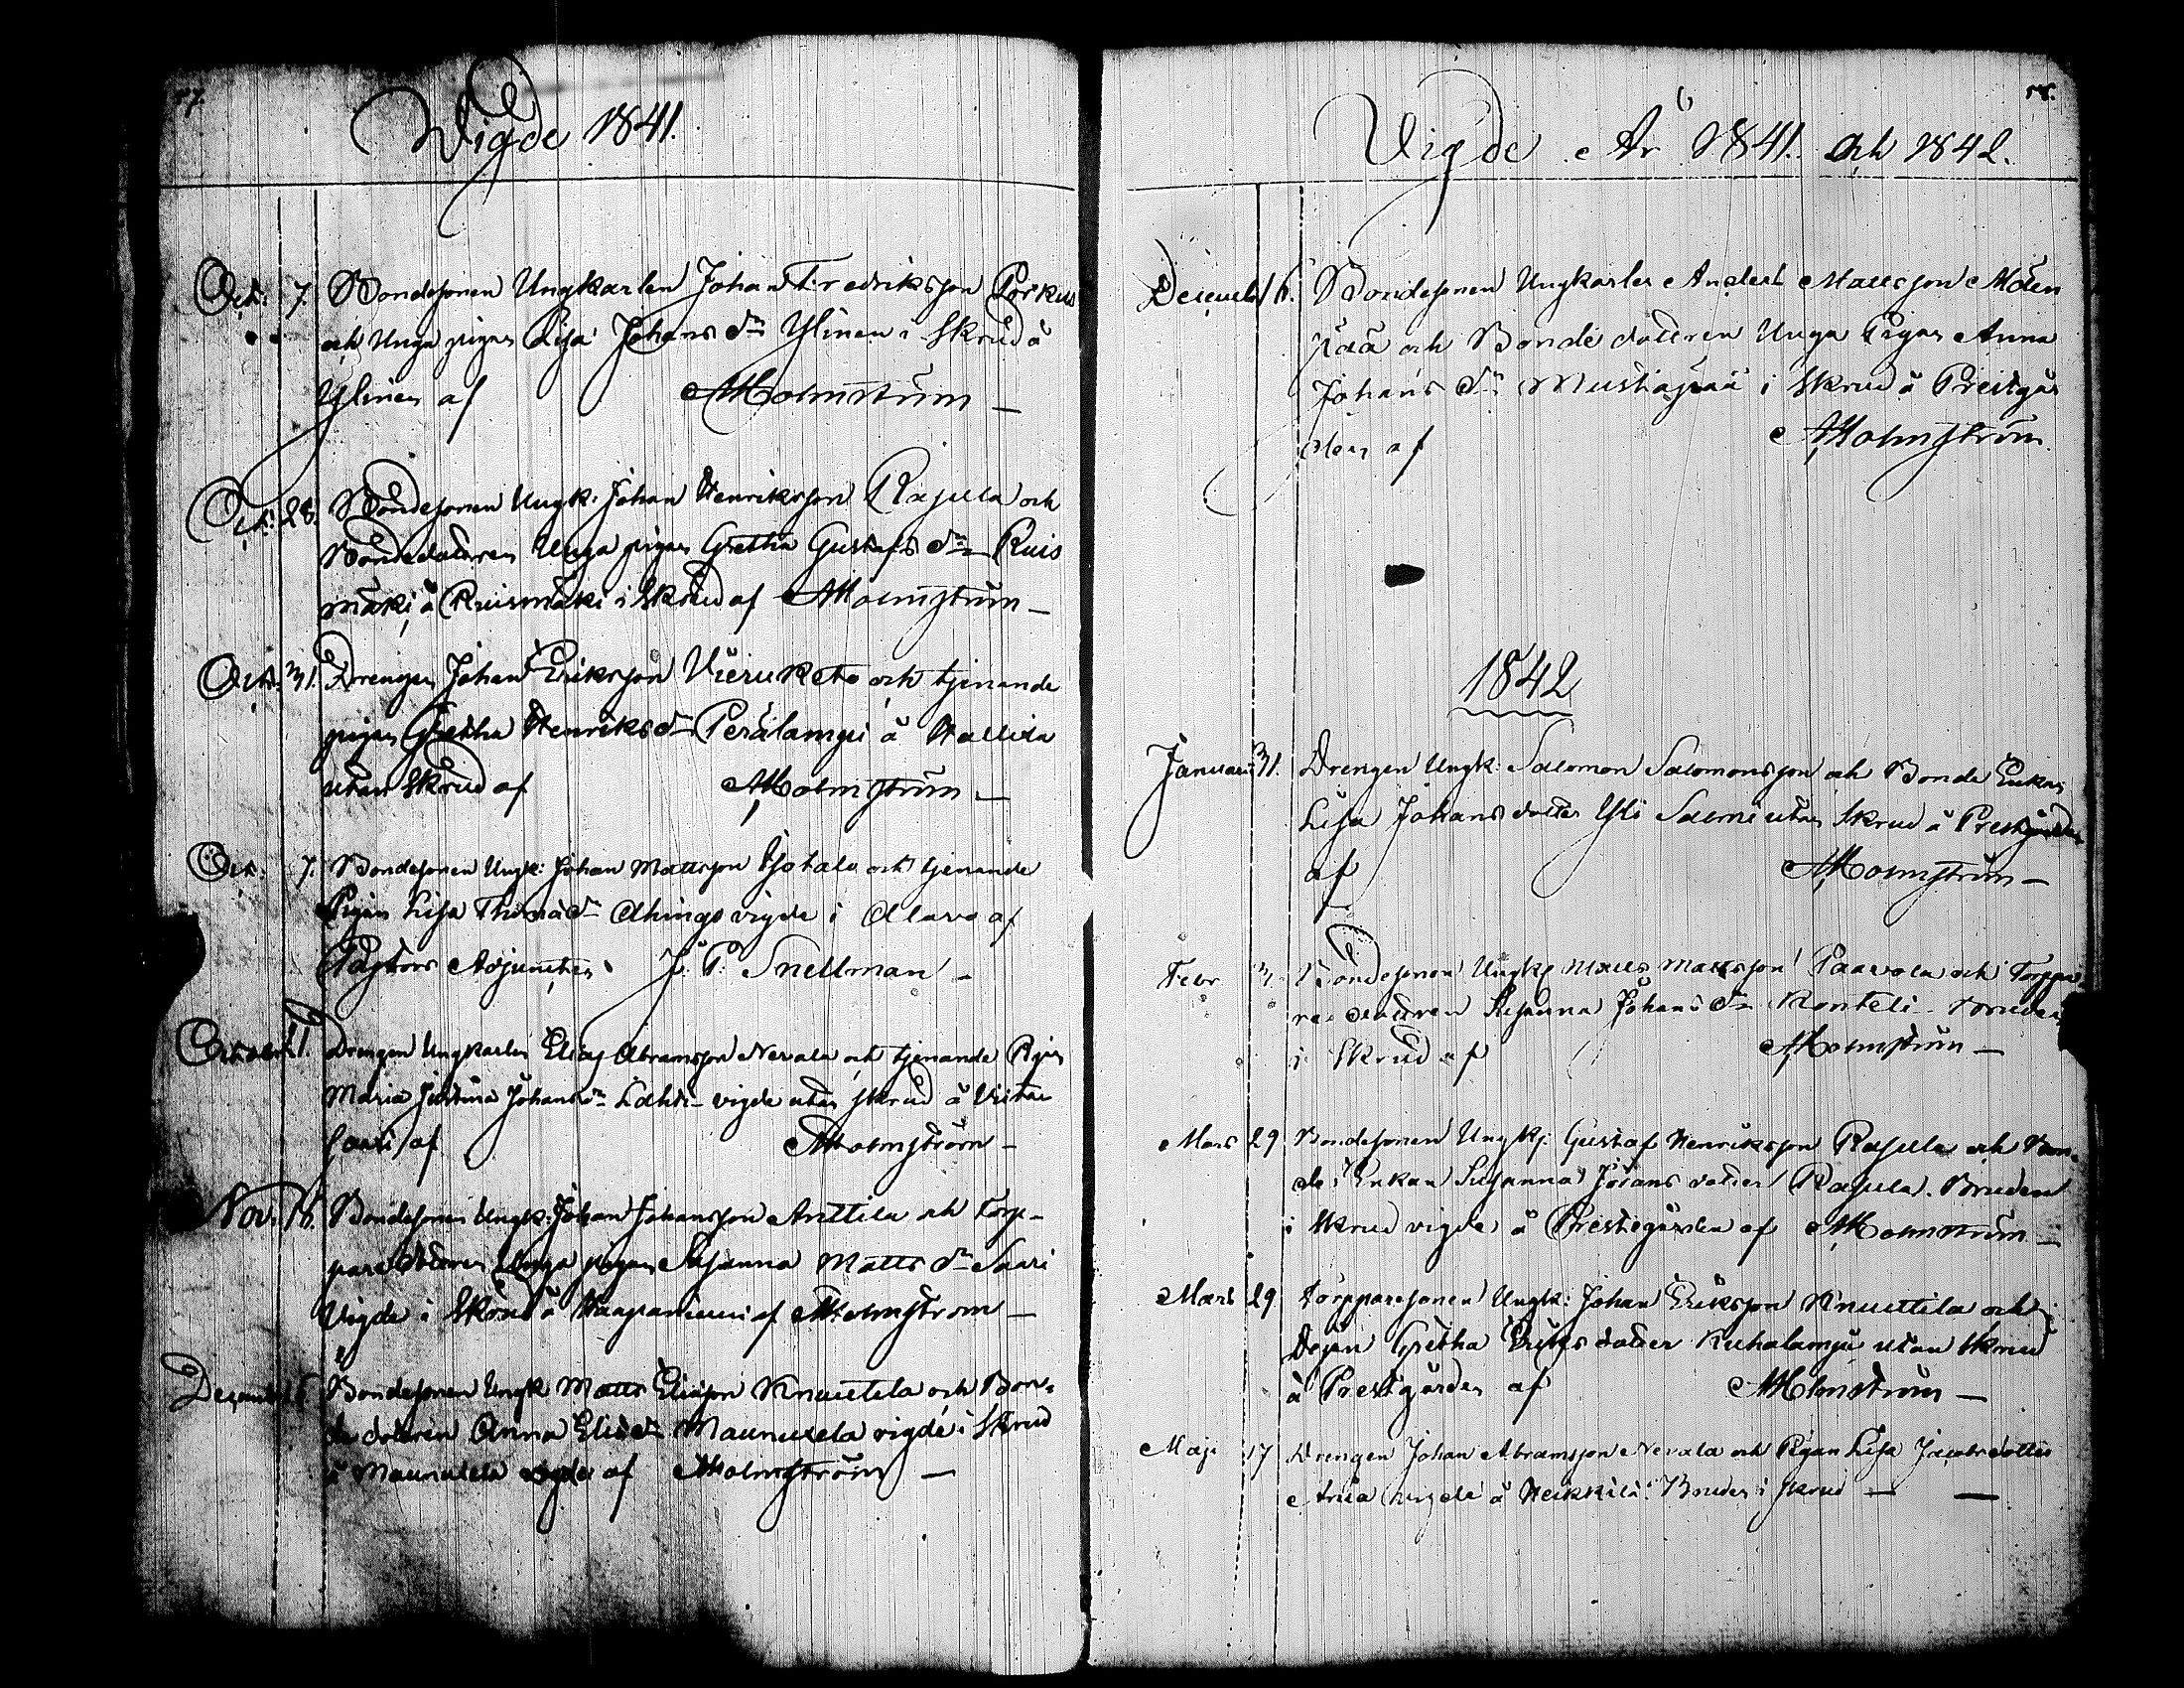 Vigde 1841.
Oct: 7 Bondesonen Ungkarlen Johan Fredriksson Porkus
och Unga pigan Lisa Johans dr Ylinen i Skrud å
Ylinen af AHolmström
Oct: 28. Bondesonen Ungk: Johan Henriksson Rajula och
Bondedottren Unga pigan Gretha Gustafs dr Ruis
mäki å Ruismäki i Skrud af AHolmström
Oct: 31. Drengen Johan Eriksson Vieruketo och tjenande
pigan Gretha Henriks dr Perälampi å
utan Skrud af AHolmström
Oct. 7. Bondesonen Ungk: Johan Mattsson och tjenande
Pigan Lisa dr vigde i Alavo af
Pastors Adjuncten J. P. Snellman
11. Drengen Ungkarlen Elias Abramsson Nevala och tjenande Pigan
Maria Justina Johans dr Lahti vigde utan skrud å
saari af AHolmström
Nov. 18. Bondesonen Ungk: Johan Johansson Anttila och Torp-
pare dottren Unga pigan Susanna Matts dr Saari
Vigde i Skrud å Haapaniemi af AHolmström
Decemb Bondesonen Ungk Matts Eliasson Knuutila och Bon-
de dottren Anna Elias dr Maunusela vigde i Skrud
å Maunusela af AHolmström
Vigde År 1841. och 1842.
December 16. Bondesonen Ungkarlen Anders Mattsson
pää och Bonde dottren Unga Pigan Anna
Johans dr Mustapää i Skrud å Prestgår
den af AHolmström
1842
Januari 31. Drengen Ungk: Salomon Salomonsson och Bonde Enkan
Lisa Johans dotter Yli Salmi utan Skrud å Prestgården
af AHolmström
Febr 3 Bondesonen Ungk: Matts Mattsson Paavola och Torppa
re dottren Susanna Johans dr Konteli Bruden
i Skrud af AHolmström
Mars 29 Bondesonen Ungk: Gustaf Henriksson Rajula och Bon-
de Enkan Susanna Johans dotter Rajula. Bruden
i Skrud vigde å Prestegården af AHolmström
Mars 29 Torpparesonen Ungk: Johan Eriksson Knuuttila och
Pigan Gretha Eriks dotter Kuhalampi utan Skrud
å Prestgården af AHolmström
Maji 17 Drengen Johan Abramsson Nevala och Pigan Lisa Jacobs dotter
vigde å Heikkilä: Bruden i skrud